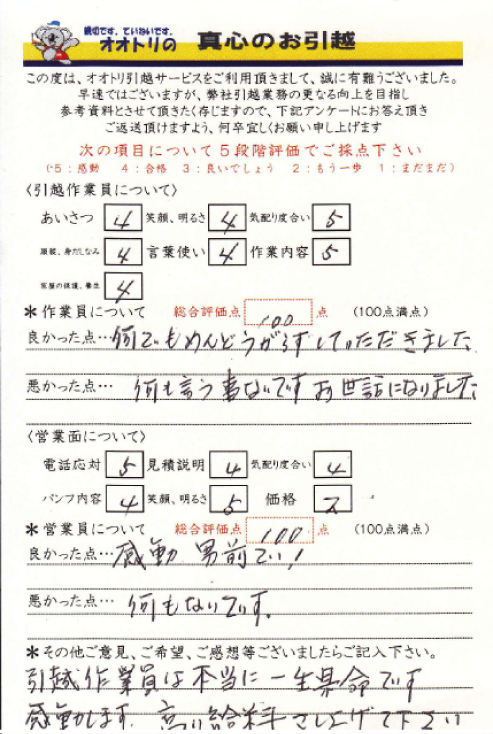 親切です。ていねいです。
オオトリの 真心のお引越
この度は、オオトリ引越サービスをご利用頂きまして、誠に有難うございました。
早速ではございますが、弊社引越業務の更なる向上を目指し
参考資料とさせて頂きたく存じますので、下記アンケートにお答え頂き
ご返送頂けますよう、何卒宜しくお願い申し上げます
次の項目について5段階評価でご採点下さい
(5:感動 4:合格 3:良いでしょう 2:もう一歩 1:まだまだ)
〈引越作業員について〉
あいさつ 4 笑顔、明るさ 4 気配り度合い 5
服装、身だしなみ 4 言葉使い 4 作業内容 5
家屋の保護、養生 4
*作業員について 総合評価点 100 点 (100点満点)
良かった点…何でもめんどうがらずしていただきました
悪かった点… 何も言う事ないです お世話になりました
〈営業面について〉
電話応対 5 見積説明 4 気配り度合い 4
パンフ内容 4 笑顔、明るさ 5 価格 2
*営業員について 総合評価点 100 点 (100点満点)
良かった点…感動 男前でい!
悪かった点… 何もないです。
*その他ご意見、ご希望、ご感想等ございましたらご記入下さい。
引越作業員は本当に一生県命です
感動します. 高い給料さし上げて下さい